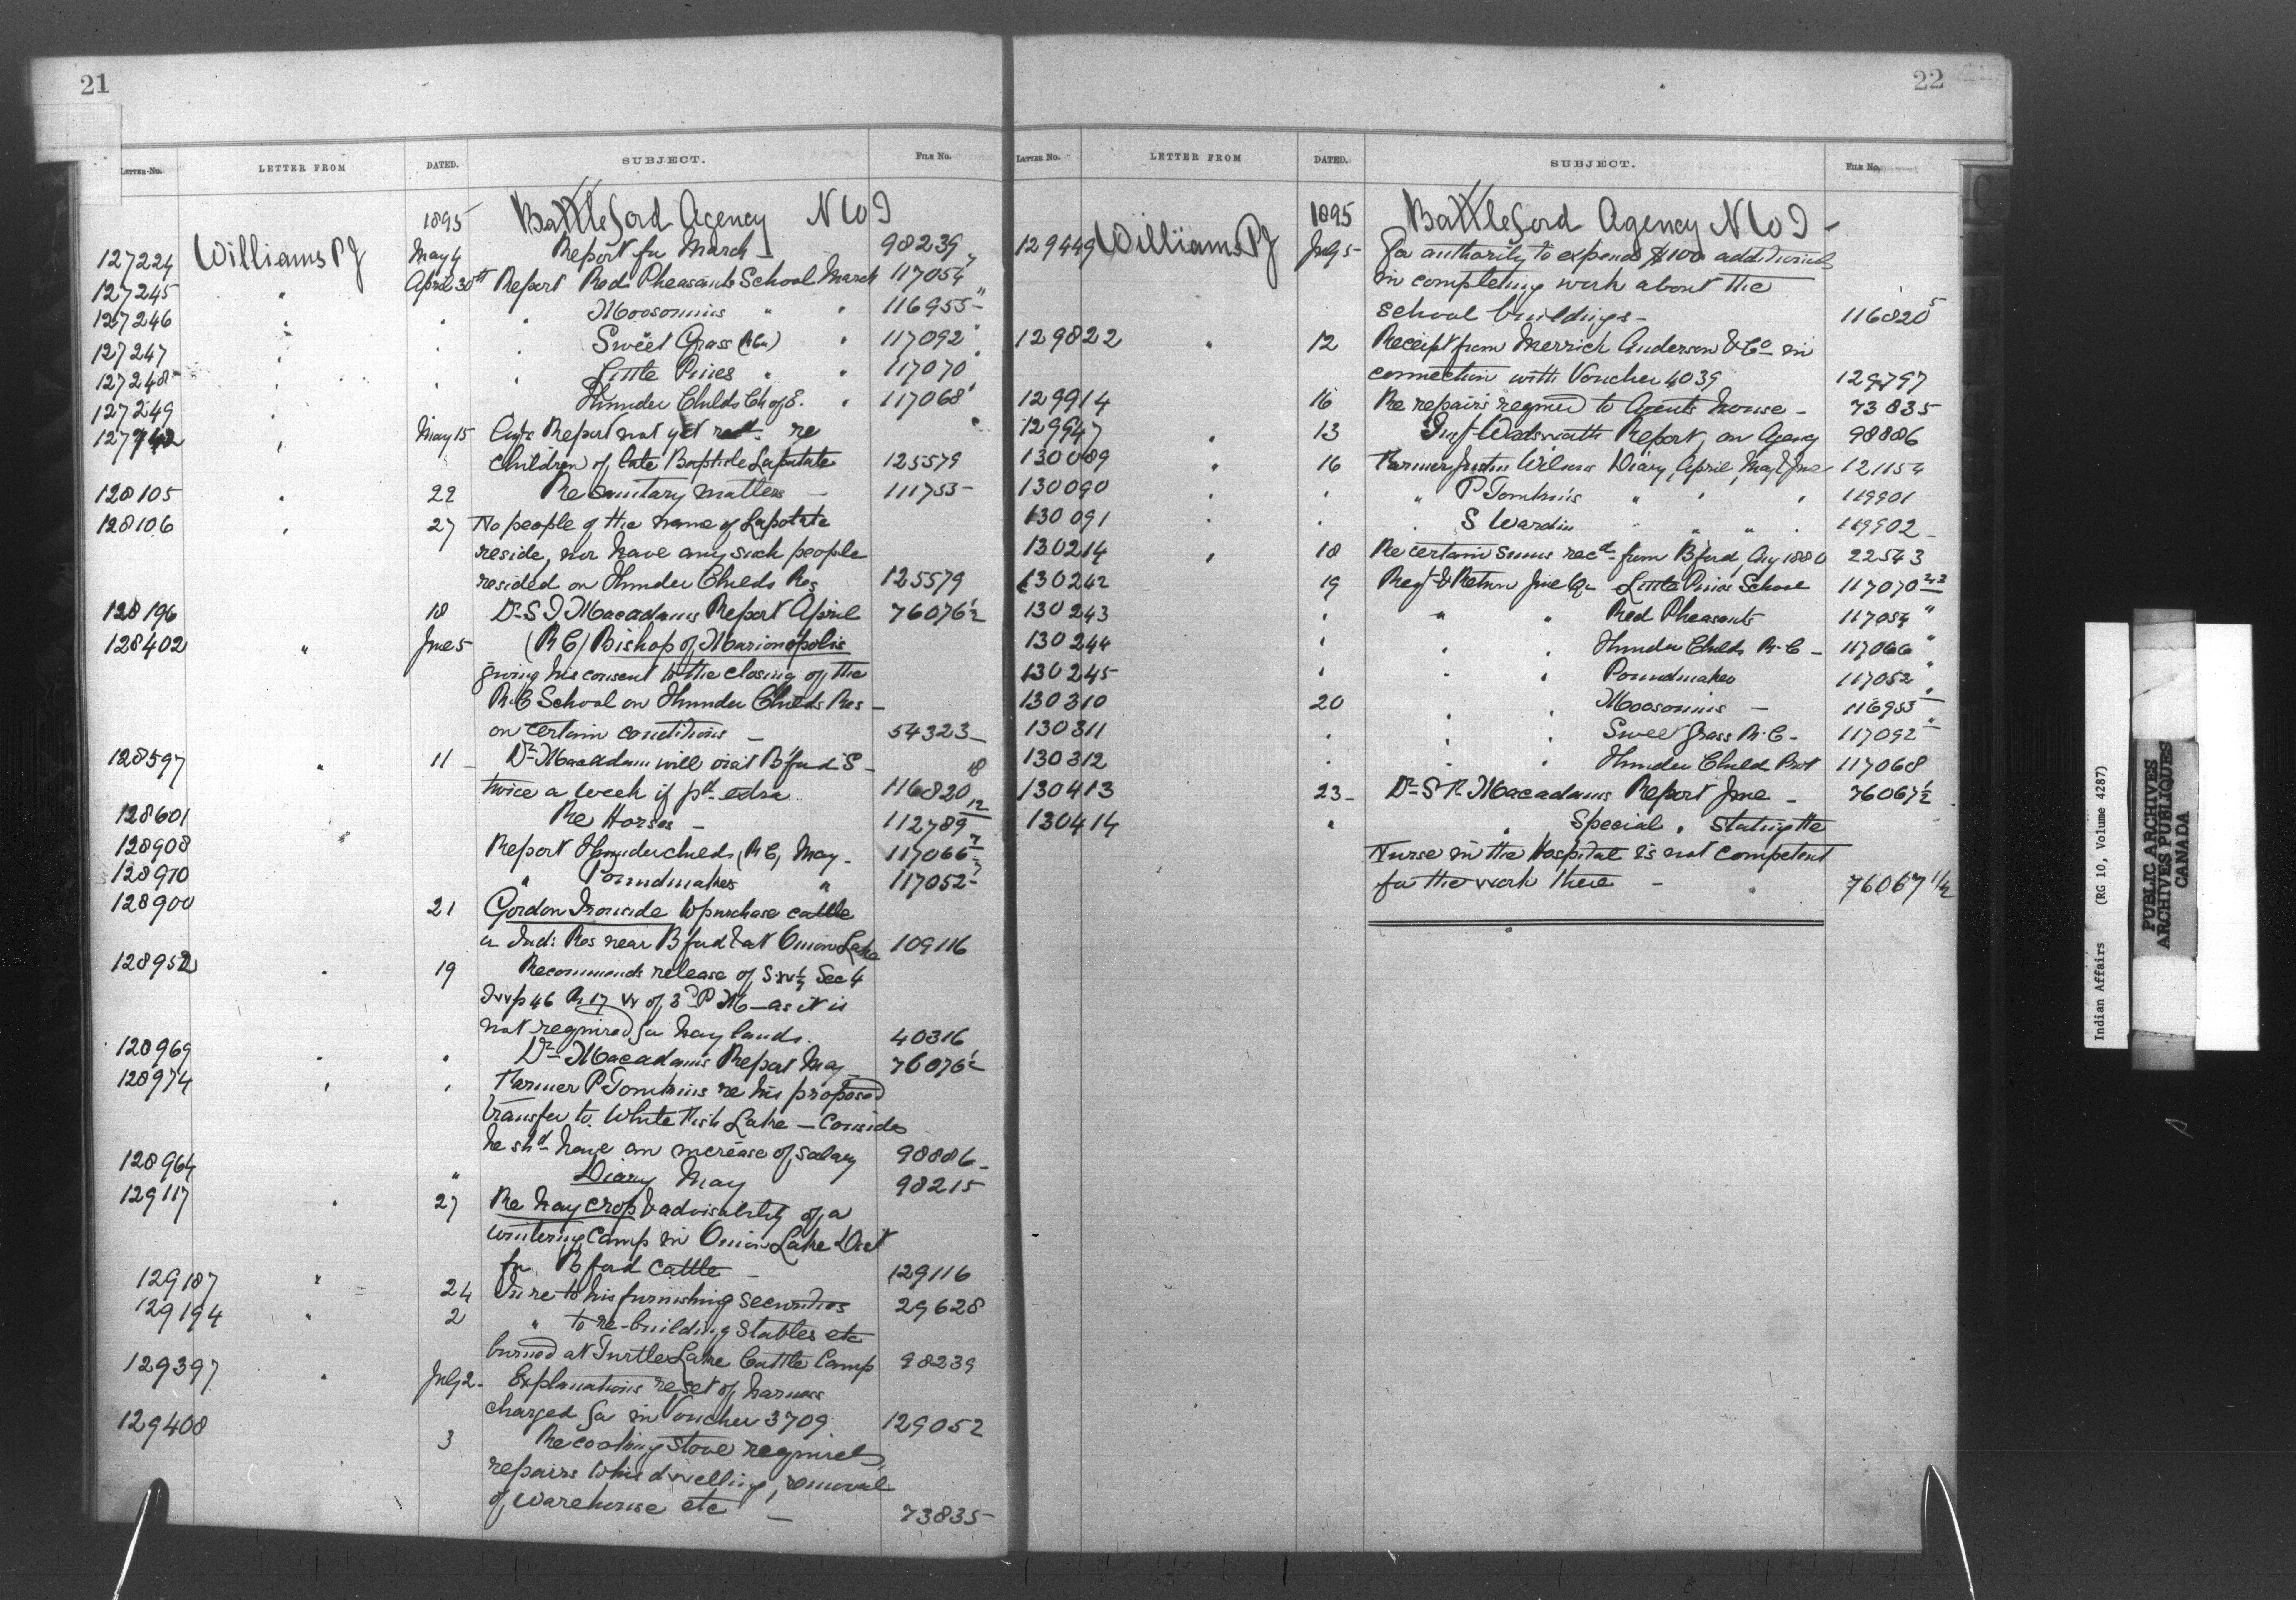 21
LETTER No. LETTER FROM DATED. SUBJECT. FILE No.
1895 Battleford Agency N W T
127224 Williams P J May 4 Report for March 98239
127245 " April 30th Report Red Pheasants School March 117054
127246 " " " Moosomins " " 116955
127247 " " " Sweet Grass " 117092
127248 " " " Little Pines " " 117070
127249 " Thunder Childs Ch of E. " 117068
" May 15 Report not yet recd. re
children of late Baptiste Lapatate 125579
128105 " 22 Re sanitary matters — 111753
128106 " 27 No people of the name of Lapotate
reside, nor have any such people
resided on Thunder Childs Res 125579
128196 18 Dr S T Macadams Report April 76076½
128402 " June 5 (R C) Bishop of Marionopolis
giving his consent to the closing of the
R.C School on Thunder Childs Res —
on certain conditions — 54323
128597 " 11 Dr Macadam will visit B'ford I S — 18
twice a week if pd extra 116820
128601 " Re Horses — 112789 12
128908 Report Thunderchilds (R C) May 117066 7
128910 " Poundmakers " 117052 7
128900 21 Gordon Ironside to purchase cattle
Ind: Res near B'ford & at Onion Lake 109116
128952 " 19 Recommends release of S.W¼ Sec 4
Twp 46 R 17 W of 3rd P M — as it is
not required for hay lands. 40316
128969 " " Dr Macadams Report May 76076½
128974 " " Farmer P Tomkins re his proposed
transfer to White Fish Lake — Consider
he shd have an increase of salary 98886
128964 " Diary May 98215
129117 " 27 Re hay crop & advisability of a
wintering Camp in Onion Lake Dist
for B'ford cattle — 129116
129187 " 24 In re to his furnishing securities 29628
129194 " 2 " to re-building stables etc
burned at Turtle Lake Cattle Camp 98239
129397 " July 2 Explanations re set of harness
charged for in Voucher 3709 129052
129408 3 Re cooking stove required,
repairs to his dwelling, removal
of warehouse etc — 73835
22
LETTER No. LETTER FROM DATED. SUBJECT. FILE No.
1895 Battleford Agency N W T —
129449 Williams P J July 5 For authority to expend $100 additional
in completing work about the
school buildings — 116820 5
129822 " 12 Receipt from Merrick Anderson & Co in
connection with Voucher 4039 129797
129914 16 Re repairs required to Agents house — 73835
129947 " 13 Insp Wadsworth Report, on Agency 98886
130089 " 16 Farmer Justus Wilson Diary, April, May & June 121154
130090 " " " P Tomkins " " " 119901
130091 " " " S Wardin " " " 119902
130214 " 18 Re certain sums recd from B'ford, Aug 1880 22543
130242 19 Rept & Return June Qr Little Pines School 117070
130243 " " " Red Pheasants 117054 "
130244 " " " Thunder Childs R.C — 117066 "
130245 " " " Poundmaker 117052 "
130310 20 " " Moosomins — 116955 "
130311 " " " Sweet Grass R.C — 117092 "
130312 " " " Thunder Child Prot 117068
130413 23 Dr S T Macadams Report June — 76067½
130414 " " Special " stating the
Nurse in the Hospital is not competent
for the work there — " 76067 1/2
Indian Affairs (RG 10, Volume 4287)
PUBLIC ARCHIVES
ARCHIVES PUBLIQUES
CANADA